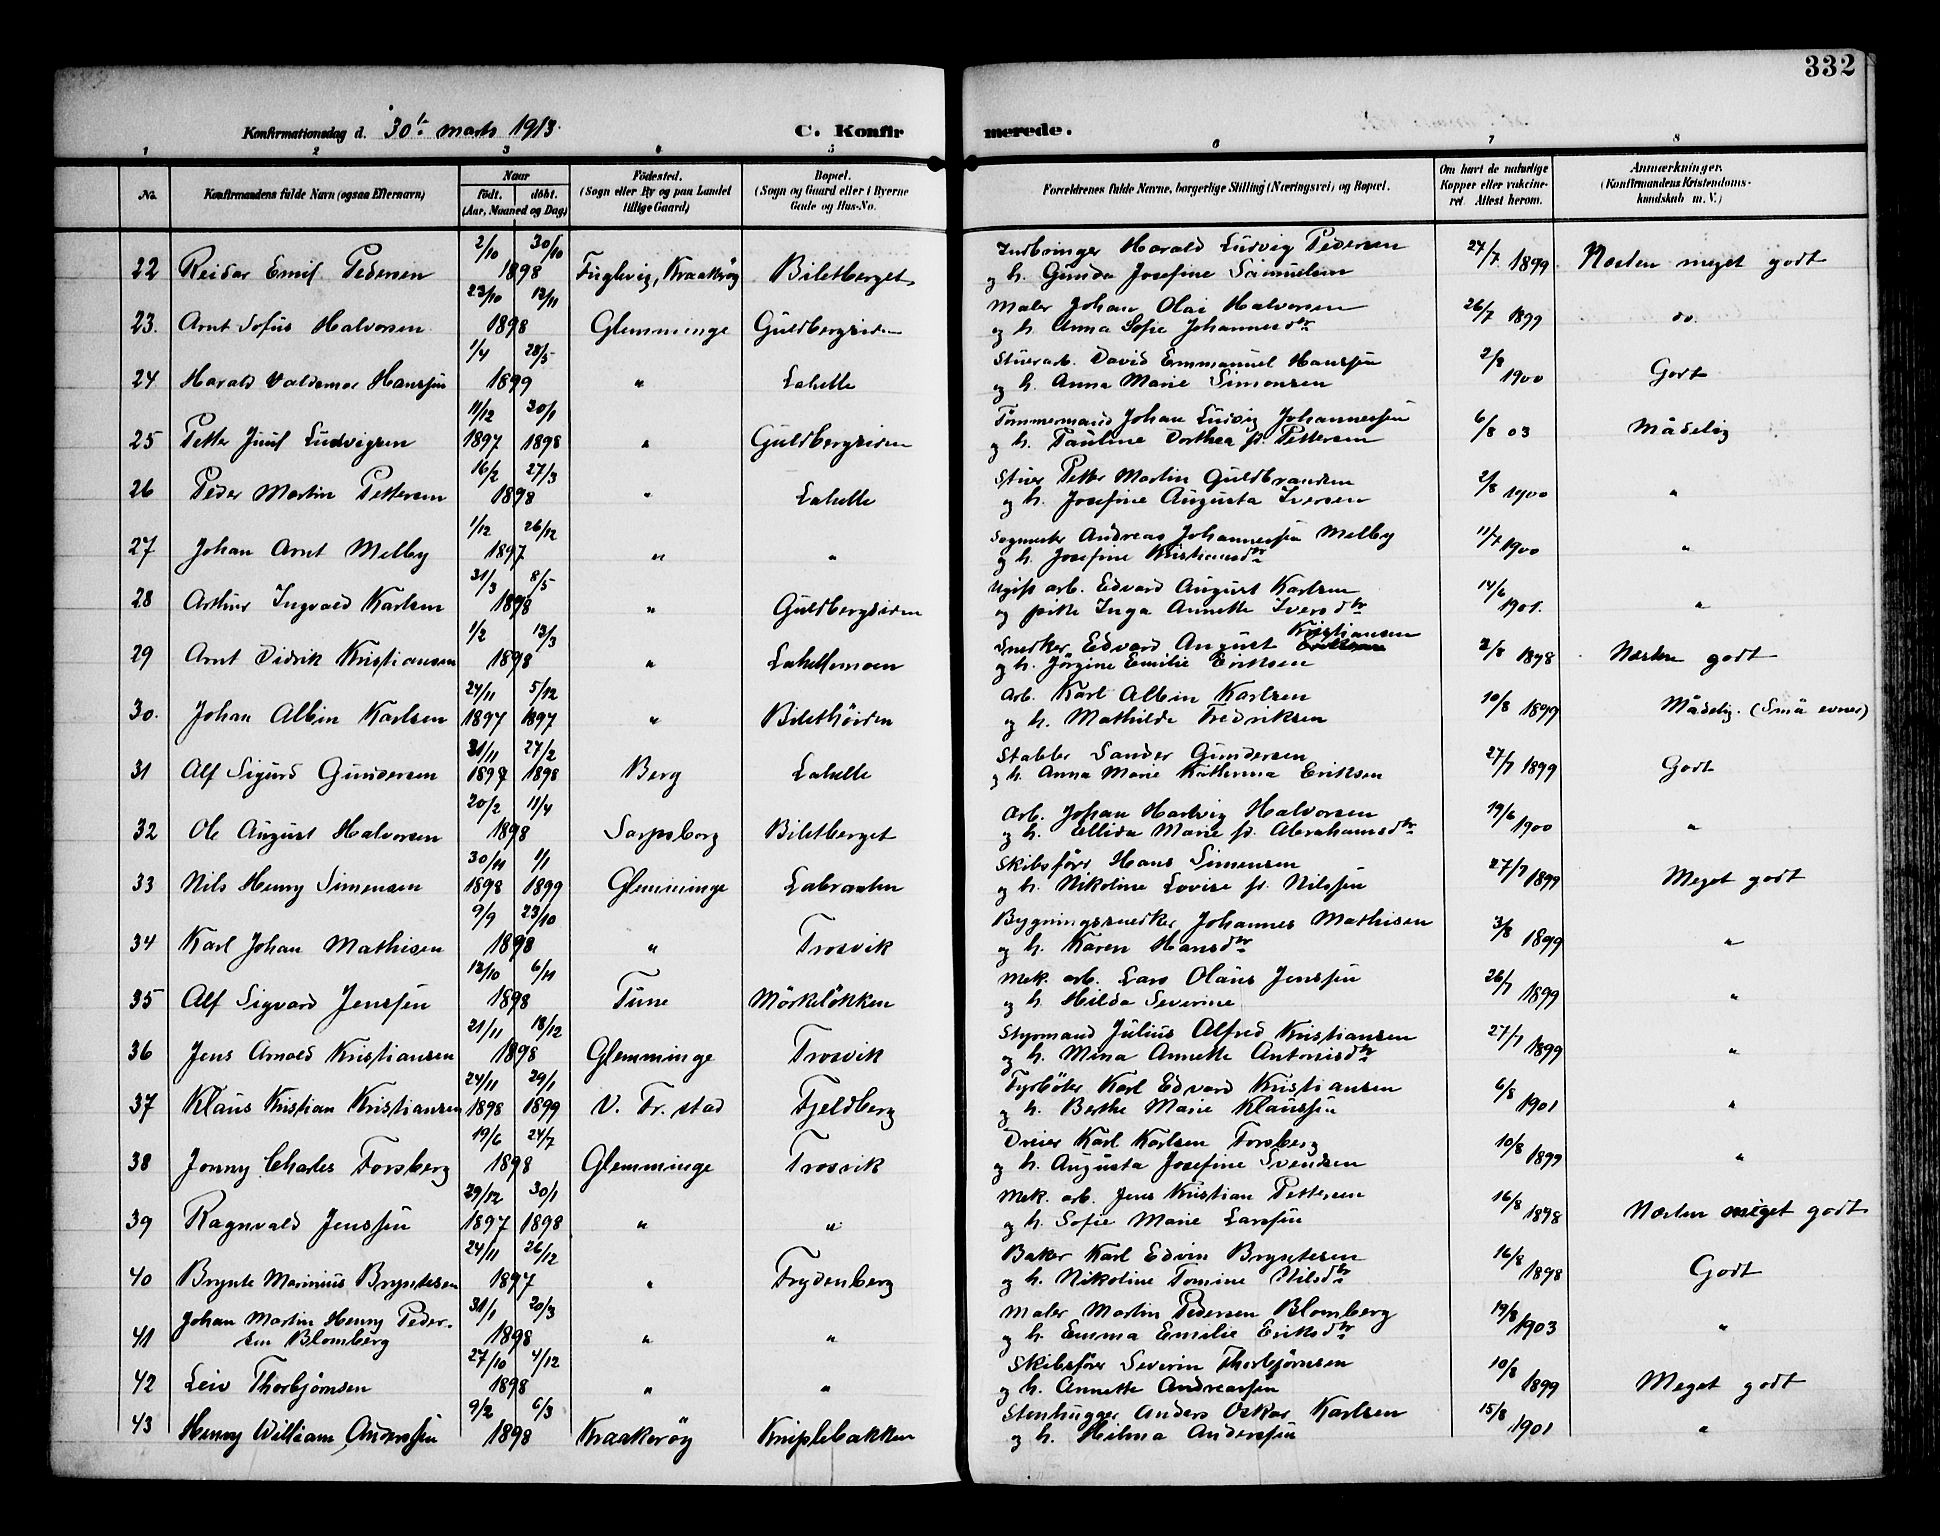 332
Konfirmationsdag d. 30te marts 1913.
C. Konfirmerede.
1 2 3 4 5 6 7 8
No. Konfirmandens fulde Navn (ogsaa Efternavn) Naar født. døbt. (Aar, Maaned og Dag) Fødested. (Sogn eller By og paa Landet tillige Gaard) Bopæl. (Sogn og Gaard eller i Byerne Gade og Hus-No. Forældrenes fulde Navne, borgerlige Stilling (Næringsvei) og Bopæl. Om havt de naturlige Kopper eller vakcineret. Attest herom. Anmærkninger. (Konfirmandens Kristendomskundskab m. V.)
22 Reidar Emil Pedersen 2/10 30/10 1898 Fuglevig, Kraakerøy Biletberget Indbringer Harald Ludvig Pedersen
og h. Gunda Josefine Samuelsen 27/7 1899 Næsten meget godt
23. Arnt Sofus Halvorsen 23/10 13/11 1898 Glemminge Guldbergsiden Maler Johan Olai Halvorsen
og h. Anna Sofie Johannesdtr 26/7 1899 do.
24 Harald Valdemar Hanssen 1/4 28/5 1899 " Lahelle Stuerarb. David Emmanuel Hanssen
og h. Anna Marie Simonsen 2/8 1900 Godt
25 Petter Juul Ludvigsen 11/12 1897 30/1 1898 " Guldbergsiden Tømmermand Johan Ludvig Johannessen
og h. Pauline Dorthea f. Pettersen 6/8 03 Mådelig
26 Peder Martin Pettersen 16/2 27/3 1898 " Lahelle Stuer Petter Martin Guldbrandsen
og h. Josefine Augusta Iversen 2/8 1900 "
27 Johan Arnt Melby 1/12 26/12 1897 " " Sagmester Andreas Johannessen Melby
og h. Josefine Kristiansdtr 11/7 1900 "
28 Arthur Ingvald Karlsen 31/3 8/5 1898 " Guldbergsiden Ugift arb. Edvard August Karlsen
og pike Inga Annette Iversdtr 14/6 1901. "
29 Arnt Didrik Kristiansen 1/2 13/3 1898 " Lahellemoen Snedker Edvard August Kristiansen
og h. Jørgine Emilie Eriksen 2/8 1898 Næsten godt
30. Johan Albin Karlsen 24/11 1897 5/12 1897 " Bilethøiden Arb. Karl Albin Karlsen
og h. Mathilde Fredriksen 10/8 1899 Mådelig. (Små evner)
31 Alf Sigurd Gundersen 31/11 1897 27/2 1898 Berg Lahelle Stabler Sander Gundersen
og h. Anna Marie Katherina Eriksen 27/7 1899 Godt
32 Ole August Halvorsen 20/2 11/4 1898 Sarpsborg Biletberget Arb. Johan Hartvig Halvorsen
og h. Ellida Marie f. Abrahamsdtr 19/6 1900 "
33 Nils Henry Simensen 30/11 1898 1/1 1899 Glemminge Labraaten Skibsfører Hans Simensen
og h. Nikoline Lovise f. Nilssen 27/7 1899 Meget godt
34 Karl Johan Mathisen 9/9 23/10 1898 " Trosvik Bygningssnedker Johannes Mathisen
og h. Karen Hansdtr 3/8 1899 "
35 Alf Sigvard Jenssen 13/10 6/11 1898 Tune Mørkeløkken Mek. arb. Lars Olaus Jenssen
og h. Hilda Severine 26/7 1899 "
36 Jens Arnold Kristiansen 21/11 18/12 1898 Glemminge Trosvik Styrmand Julius Alfred Kristiansen
og h. Mina Annette Antonisdtr 27/7 1899 "
37 Klaus Kristian Kristiansen 24/11 1898 29/1 1899 V. Fr. stad Fjeldberg Fyrbøter Karl Edvard Kristiansen
og h. Berthe Marie Klaussen 6/8 1901 "
38 Jonny Charles Forsberg 19/6 24/7 1898 Glemminge Trosvik Dreier Karl Karlsen Forsberg
og h. Augusta Josefine Svendsen 10/8 1899 "
39 Ragnvald Jenssen 29/12 1897 30/1 1898 " " Mek. arb. Jens Kristian Pettersen
og h. Sofie Marie Larssen 16/8 1898 Næsten meget godt
40 Brynte Marinius Bryntesen 24/11 26/12 1897 " Frydenberg Baker Karl Edvin Bryntesen
og h. Nikoline Tomine Nilsdtr 16/8 1898 Godt
41 Johan Martin Henry Pedersen Blomberg 31/1 20/3 1898 " " Maler Martin Pedersen Blomberg
og h. Emma Emilie Eriksdtr 19/8 1903 "
42 Leiv Thorbjørnsen 27/10 4/12 1898 " " Skibsfører Severin Thorbjørnsen
og h. Annette Andreassen 10/8 1899 Meget godt
43 Henry William Anderssen 9/2 6/3 1898 Kraakerøy Kniplebakken Stenhugger Anders Oskar Karlsen
og h. Hilma Anderssen 15/8 1901 "